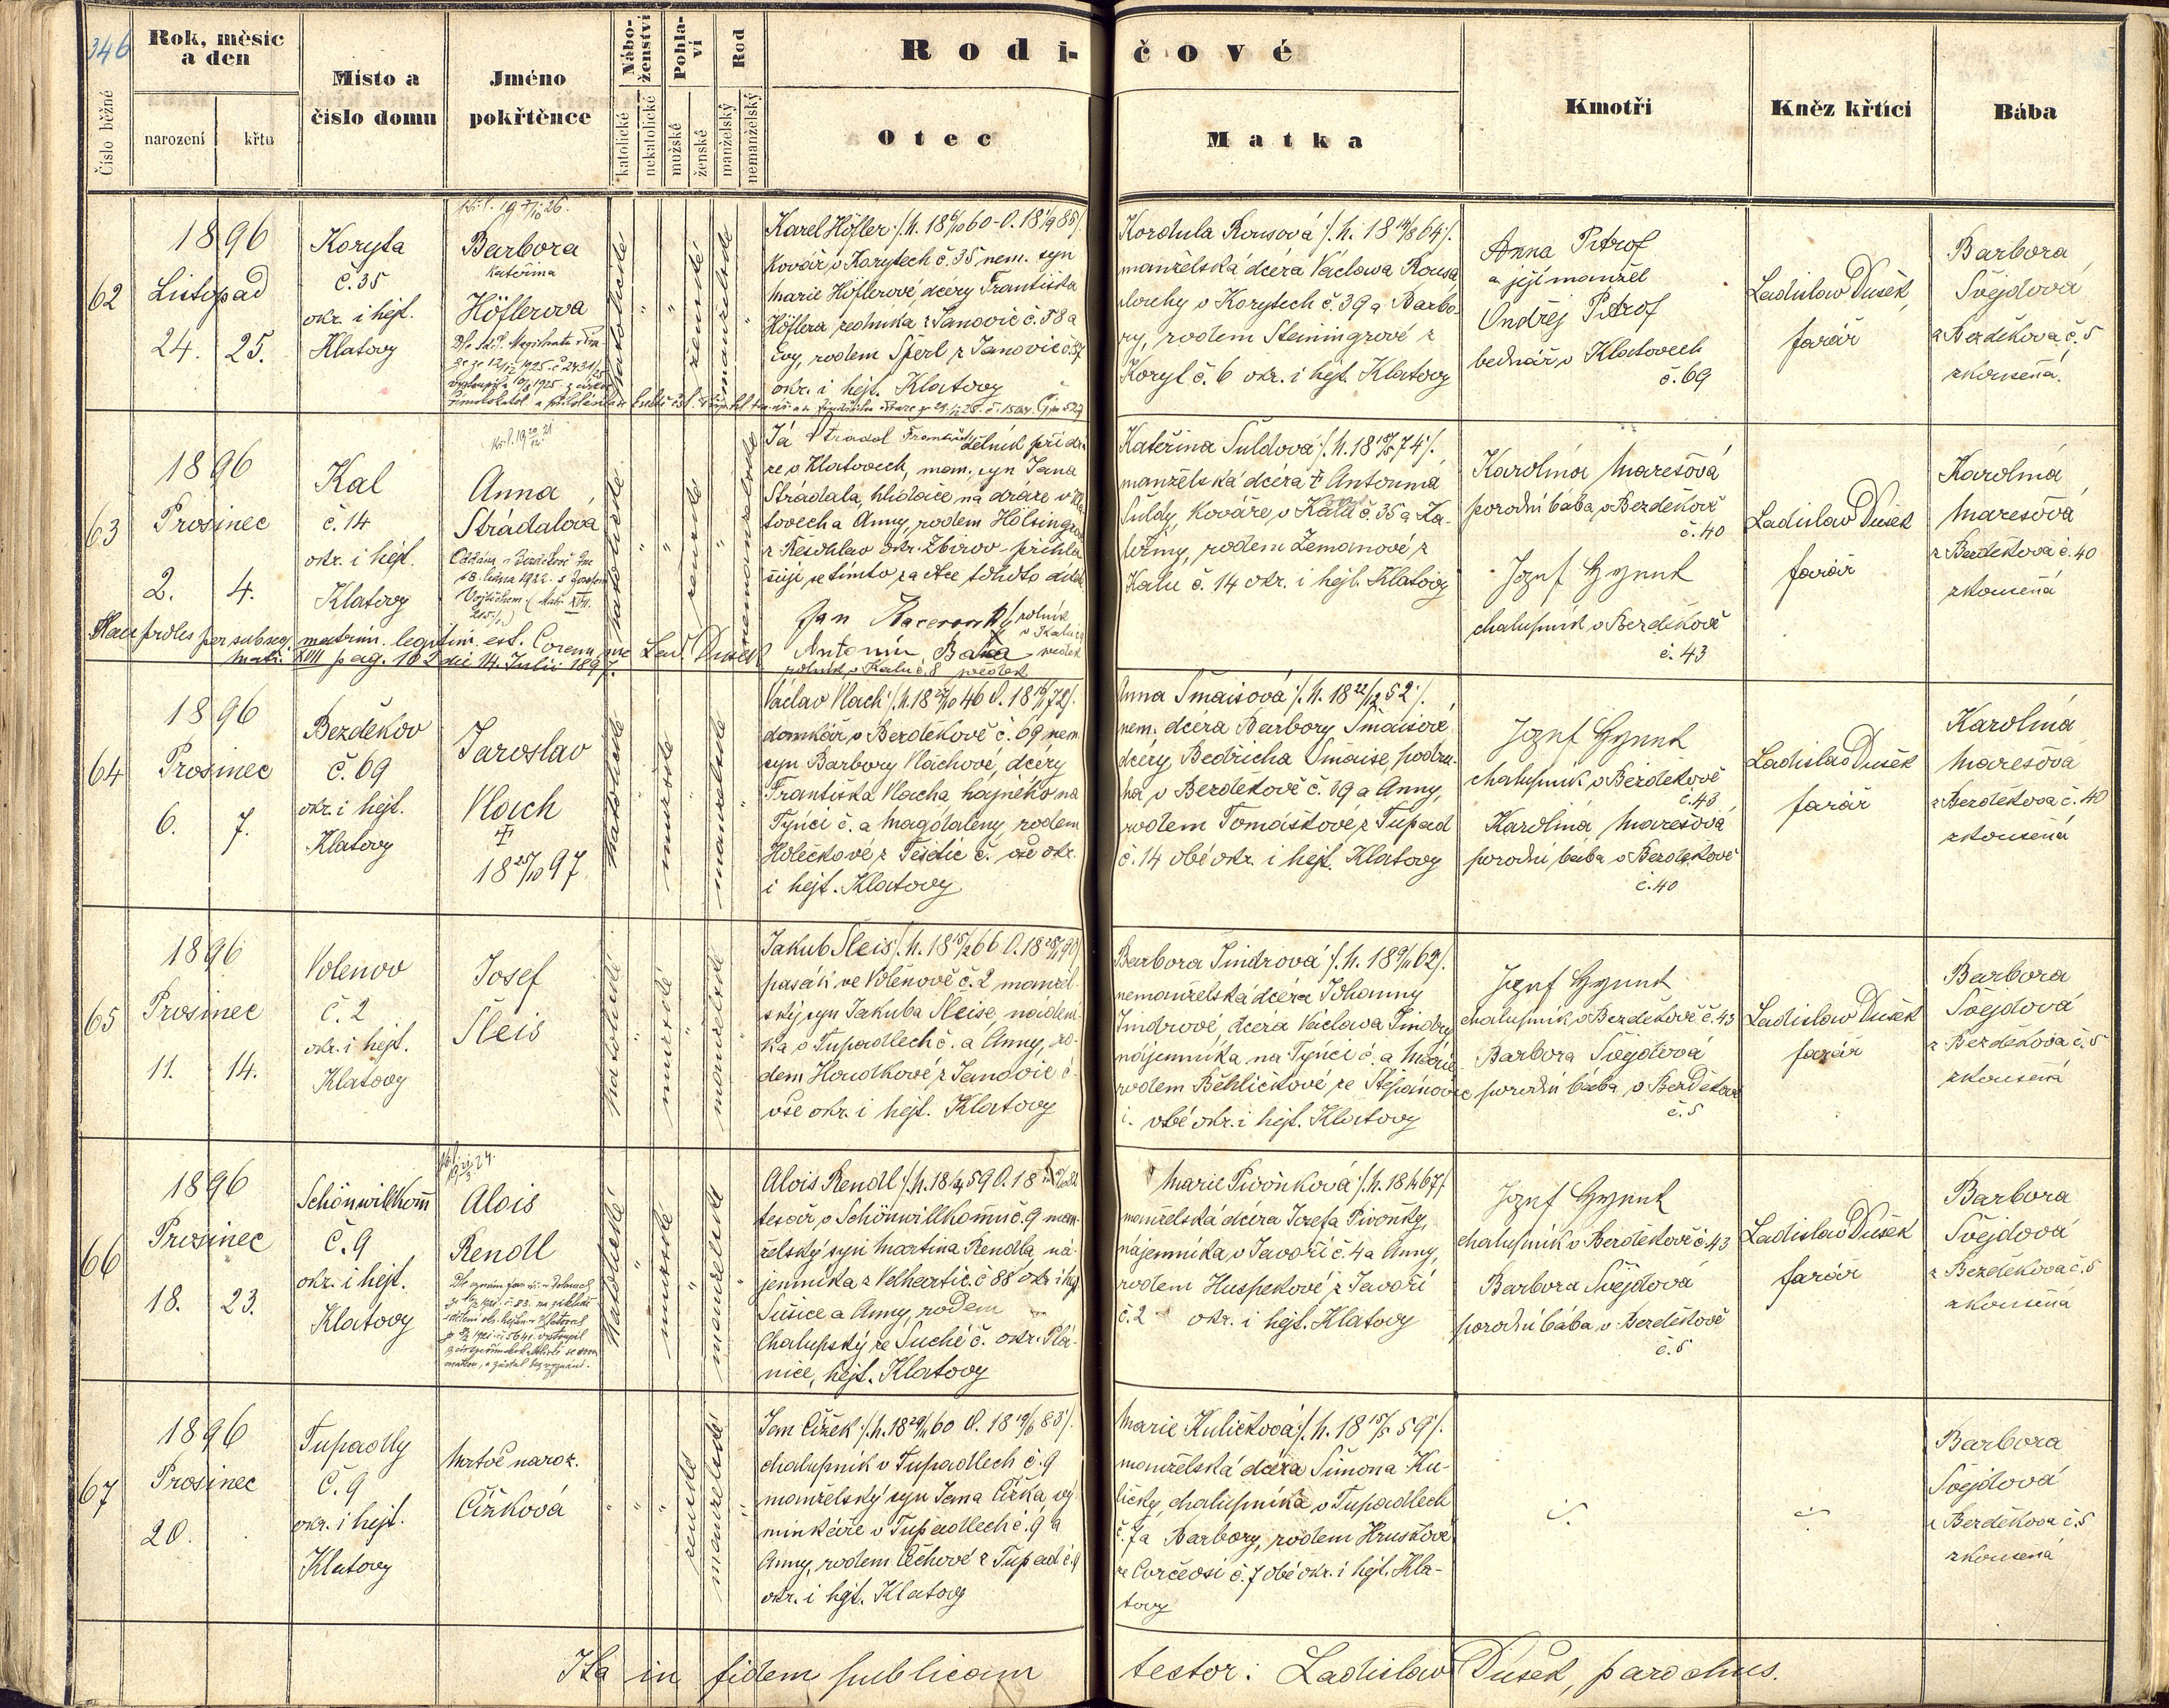 346
Rok, měsíc
a den
Číslo běžné
narození
křtu
Místo a
číslo domu
Jméno
pokřtěnce
Nábo-
ženství
katolické
nekatolické
Pohla-
ví
mužské
ženské
Rod
manželský
nemanželský
Rodi-
čové
Otec
Matka
Kmotři
Kněz křtící
Bába
62
1896
Listopad
24. 25.
Koryta
č. 35
okr. i hejt.
Klatovy
Barbora
Kateřina
Höflerova
katolické
ženské
Karel Höfler
kovář v Korytech č. 35 nem. syn
Marie Höflerové, dcery Františka
Höflera ředníka z Janovic č. 58 a
Evy, rodem Šperl z Janovic č. 57
okr. i hejt. Klatovy
Kordula Rousová
manželská dcéra Václava Rousa
v Korytech č. 39 a Barbo-
ry, rodem Steiningrové z
Koryt č. 6 okr. i hejt. Klatovy
Anna Pitrof
a její manžel
Ondřej Pitrof
bednář v Klatovech
č. 69
Ladislav Dušek,
farář
Barbora
Švejdová
z Bezděkova č. 5
zkoušená.
63
1896
Prosinec
2. 4.
Kal
č. 14
okr. i hejt.
Klatovy
Anna
Strádalová
katolické
ženské
nemanželské
Já Strádal František, při drá-
ze v Klatovech, man. syn Jana
Strádala, hlídače na dráze v Kla-
tovech a Anny, rodem
z okr. Zbirov přihla-
šuji se tímto za otce tohoto dítěte
Jan rolník
v Kalu
Antonín Bařa svědek
rolník v Kalu č. 8 svědek
Haec proles per subseq. matrim. legitim. est. Coram me Lad. Dušek
matr. XVII pag. 162 die 14. Julii 1897.
Kateřina Šuldová /: n. 18 74 :/
manželská dcéra † Antonína
Šuldy, kováře v Kalu č. 35 a Ka-
teřiny, rodem Zemanové z
Kalu č. 14 okr. i hejt. Klatovy
Karolina Marešová
porodní bába v Bezděkově
č. 40
Josef Hynek
chalupník v Bezděkově
č. 43
Ladislav Dušek
farář
Karolina
Marešová
z Bezděkova č. 40
zkoušená
64
1896
Prosinec
6. 7.
Bezděkov
č. 69
okr. i hejt.
Klatovy
Jaroslav
Vlach
†
18 25/10 97
katolické
mužské
manželské
Václav Vlach
domkář v Bezděkově č. 69 nem.
syn Barbory Vlachové, dcéry
Františka Vlacha, hajného na
Týnci č. a Magdaleny, rodem
Holečkové z Těšetic č. vše okr.
i hejt. Klatovy
Anna Šmaisová /: n. 18 22/12 52 :/
nem. dcéra Barbory Šmaisové
dcéry Bedřicha Šmaise, podru-
ha v Bezděkově č. 39 a Anny,
rodem Tomáškové z Tupad
č. 14 obé okr. i hejt. Klatovy
Josef Hynek
chalupník v Bezděkově
č. 43
Karolina Marešová
porodní bába v Bezděkově
č. 40
Ladislav Dušek
farář
Karolina
Marešová
z Bezděkova č. 40
zkoušená
65
1896
Prosinec
11. 14.
Volenov
č. 2
okr. i hejt.
Klatovy
Josef
Šleis
katolické
mužské
manželské
Jakub Šleis
pasák ve Volenově č. 2 manžel-
ský syn Jakuba Šleise, nádení-
ka v Tupadlech č. a Anny, ro-
dem Houdkové z Janovic č.
vše okr. i hejt. Klatovy
Barbora Jindrová
nemanželská dcéra Johanny
Jindrové, dcéra Václava Jindry
nájemníka na Týnci č. a Marie
rodem Běhlíčkové ze Štěpánovic
č. obé okr. i hejt. Klatovy
Josef Hynek
chalupník v Bezděkově č. 43
Barbora Švejdová
porodní bába v Bezděkově
č. 5
Ladislav Dušek
farář
Barbora
Švejdová
z Bezděkova č. 5
zkoušená
66
1896
Prosinec
18. 23.
Schönwillkom̅
č. 9
okr. i hejt.
Klatovy
Alois
Rendl
katolické
mužské
manželské
Alois Rendl
tesař v Schönwillkomu č. 9 man-
želský syn Martina Rendla, ná-
jemníka z Velhartic č. 88 okr. i hejt.
Sušice a Anny, rodem
Chalupský ze Suché č. okr. Plá-
nice, hejt. Klatovy
Marie Pivoňková
manželská dcéra Josefa Pivoňky,
nájemníka v Javoří č. 4 a Anny,
rodem Huspekové z Javoří
č. 2 okr. i hejt. Klatovy
Josef Hynek
chalupník v Bezděkově č. 43
Barbora Švejdová
porodní bába v Bezděkově
č. 5
Ladislav Dušek
farář
Barbora
Švejdová
z Bezděkova č. 5
zkoušená
67
1896
Prosinec
20.
Tupadly
č. 9
okr. i hejt.
Klatovy
Mrtvě naroz.
Čížková
ženské
manželské
Jan Čížek
chalupník v Tupadlech č. 9
manželský syn Jana Čížka, vý-
minkáře v Tupadlech č. 9 a
Anny, rodem Čechové z Tupad č. 9
okr. i hejt. Klatovy
Marie Kuličková /: n. 18 15/5 59 :/
manželská dcéra Šimona Ku-
ličky, chalupníka v Tupadlech
č. 7 a Barbory, rodem Hruškové
č. 7 obé okr. i hejt. Kla-
tovy
Barbora
Švejdová
z Bezděkova č. 5
zkoušená
Ita in fidem publicam testor: Ladislav Dušek, parochus.